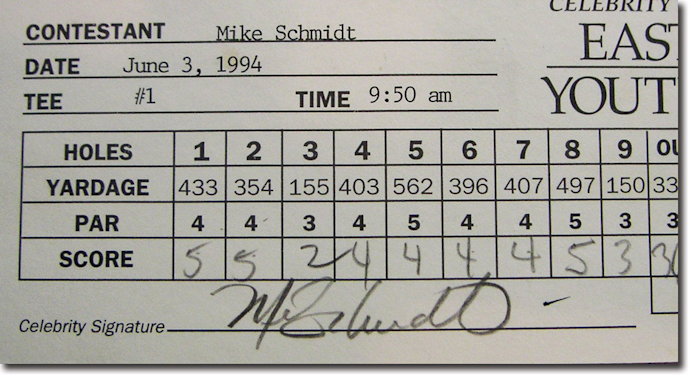 CELEBRITY
CONTESTANT Mike Schmidt
EAS
DATE June 3, 1994
YOUT
TEE #1 TIME 9:50 am
HOLES 1 2 3 4 5 6 7 8 9 OU
YARDAGE 433 354 155 403 562 396 407 497 150 33
PAR 4 4 3 4 5 4 4 5 3 3
SCORE 5 5 2 4 4 4 4 5 3 36
Celebrity Signature Mike Schmidt